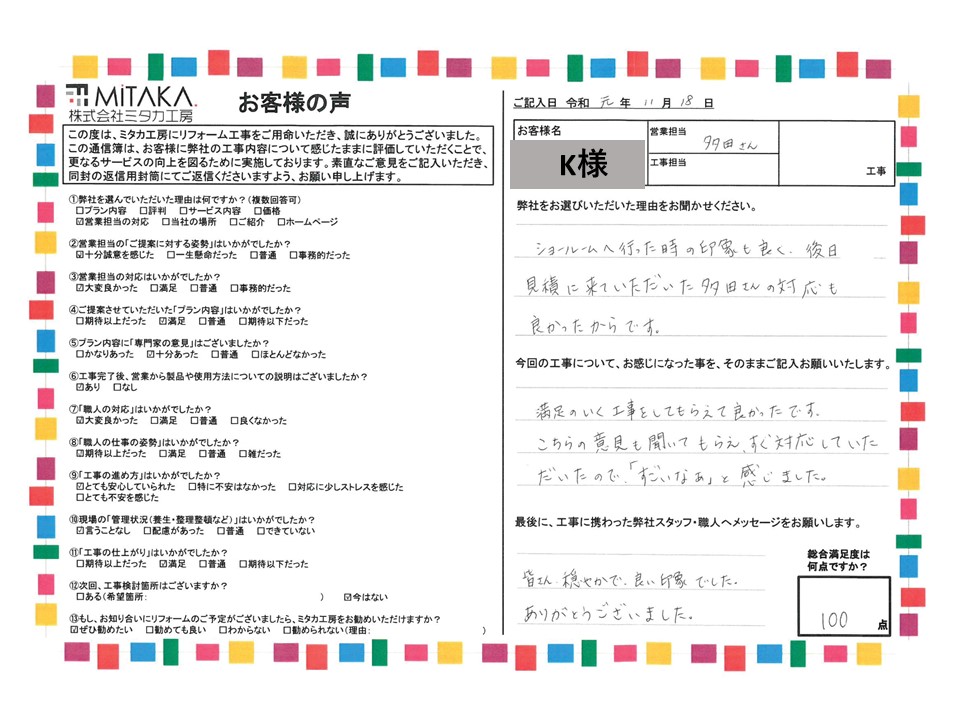 MiTAKA.
株式会社ミタカ工房
お客様の声
この度は、ミタカ工房にリフォーム工事をご用命いただき、誠にありがとうございました。
この通信簿は、お客様に弊社の工事内容について感じたままに評価していただくことで、
更なるサービスの向上を図るために実施しております。素直なご意見をご記入いただき、
同封の返信用封筒にてご返信くださいますよう、お願い申し上げます。
①弊社を選んでいただいた理由は何ですか?(複数回答可)
□プラン内容 □評判 □サービス内容 □価格
☑営業担当の対応 □当社の場所 □ご紹介 □ホームページ
②営業担当の「ご提案に対する姿勢」はいかがでしたか?
☑十分誠意を感じた □一生懸命だった □普通 □事務的だった
③営業担当の対応はいかがでしたか?
☑大変良かった □満足 □普通 □事務的だった
④ご提案させていただいた「プラン内容」はいかがでしたか?
□期待以上だった ☑満足 □普通 □期待以下だった
⑤プラン内容に「専門家の意見」はございましたか?
□かなりあった ☑十分あった □普通 □ほとんどなかった
⑥工事完了後、営業から製品や使用方法についての説明はございましたか?
☑あり □なし
⑦「職人の対応」はいかがでしたか?
☑大変良かった □満足 □普通 □良くなかった
⑧「職人の仕事の姿勢」はいかがでしたか?
☑期待以上だった □満足 □普通 □雑だった
⑨「工事の進め方」はいかがでしたか?
☑とても安心していられた □特に不安はなかった □対応に少しストレスを感じた
□とても不安を感じた
⑩現場の「管理状況(養生・整理整頓など)」はいかがでしたか?
☑言うことなし □配慮があった □普通 □できていない
⑪「工事の仕上がり」はいかがでしたか?
□期待以上だった ☑満足 □普通 □期待以下だった
⑫次回、工事検討箇所はございますか?
□ある(希望箇所: ) ☑今はない
⑬もし、お知り合いにリフォームのご予定がございましたら、ミタカ工房をお勧めいただけますか?
☑ぜひ勧めたい □勧めても良い □わからない □勧められない(理由: )
ご記入日 令和 元 年 11 月 18 日
お客様名
K様
営業担当
多田さん
工事担当
工事
弊社をお選びいただいた理由をお聞かせください。
ショールームへ行った時の印象も良く、後日
見積に来ていただいた多田さんの対応も
良かったからです。
今回の工事について、お感じになった事を、そのままご記入お願いいたします。
満足のいく工事をしてもらえて良かったです。
こちらの意見も聞いてもらえ、すぐ対応していた
だいたので、「すごいなぁ」と感じました。
最後に、工事に携わった弊社スタッフ・職人へメッセージをお願いします。
皆さん、穏やかで、良い印象でした。
ありがとうございました。
総合満足度は
何点ですか?
100 点